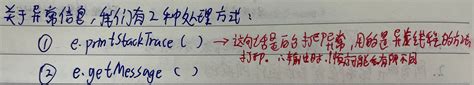 关于异常信息,我们有2种处理方式:
① e.printStackTrace() → 这句话是后台打印异常,用的是异常线程的方法
打印。八输出时,时可能会有所不同
② e.getMessage()